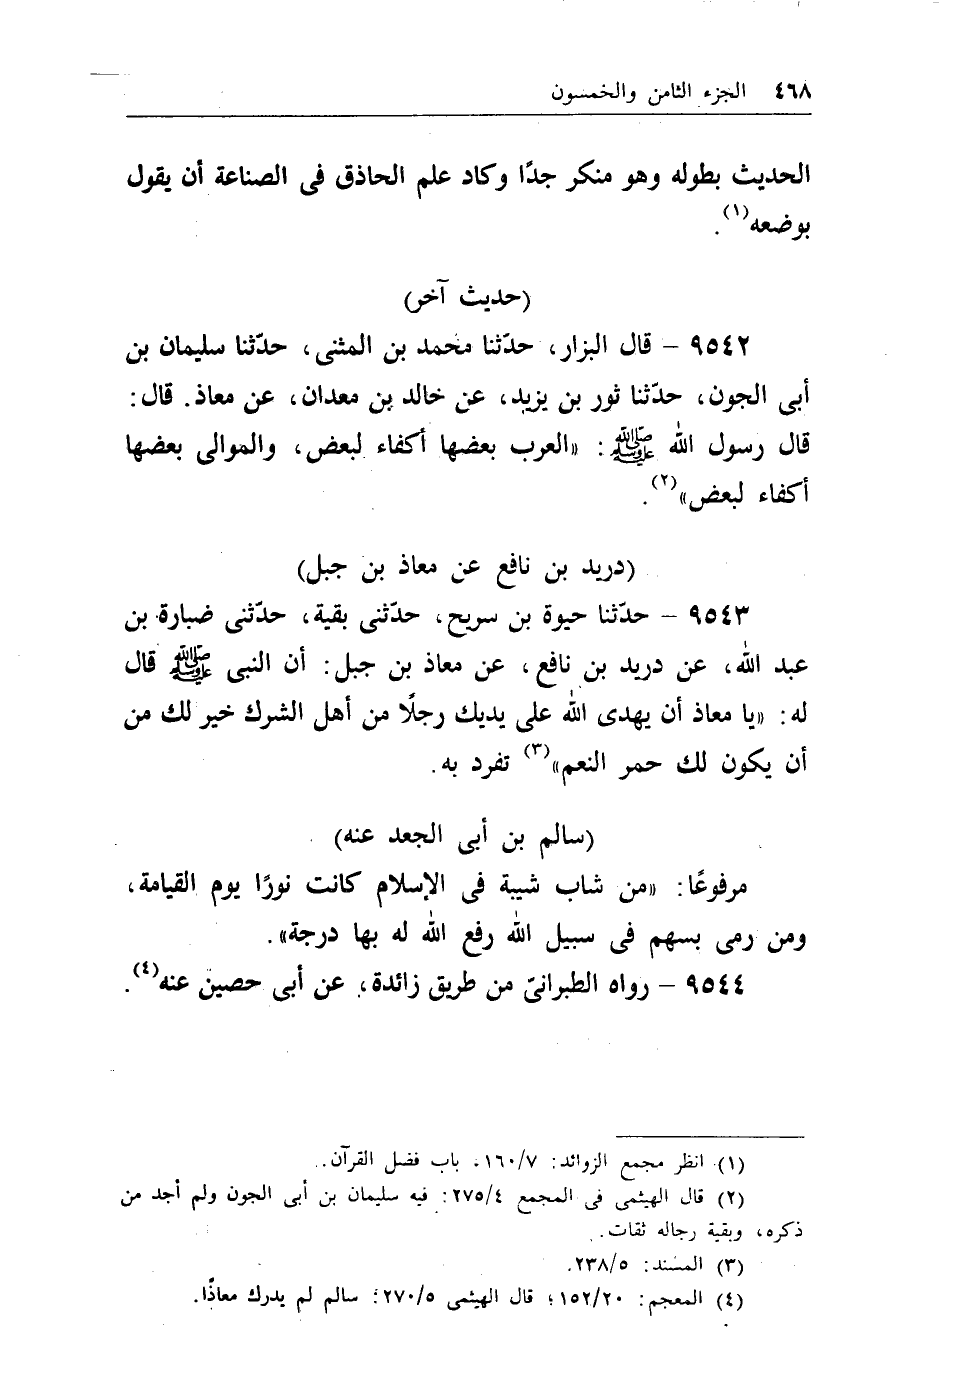 ٤٦٨ الجزء الثامن والخمسون
الحديث بطوله وهو منكر جدًا وكاد علم الحاذق فى الصناعة أن يقول
بوضعه(١).
(حديث آخر)
٩٥٤٢ - قال البزار، حدّثنا محمد بن المثنى، حدّثنا سليمان بن
أبى الجون، حدّثنا ثور بن يزيد، عن خالد بن معدان، عن معاذ. قال:
قال رسول الله ﷺ: «العرب بعضها أكفاء لبعض، والموالى بعضها
أكفاء لبعض»(٢).
(دريد بن نافع عن معاذ بن جبل)
٩٥٤٣ - حدّثنا حيوة بن سريح، حدّثنى بقية، حدّثنى ضبارة بن
عبد الله، عن دريد بن نافع، عن معاذ بن جبل: أن النبى ﷺ قال
له: «يا معاذ أن يهدى الله على يديك رجلًا من أهل الشرك خير لك من
أن يكون لك حمر النعم»(٣) تفرد به.
(سالم بن أبى الجعد عنه)
مرفوعًا: «من شاب شيبة فى الإسلام كانت نورًا يوم القيامة،
ومن رمى بسهم فى سبيل الله رفع الله له بها درجة».
٩٥٤٤ - رواه الطبرانىّ من طريق زائدة، عن أبى حصين عنه(٤).
(١) انظر مجمع الزوائد: ١٦٠/٧، باب فضل القرآن.
(٢) قال الهيثمى فى المجمع ٢٧٥/٤: فيه سليمان بن أبى الجون ولم أجد من
ذكره، وبقية رجاله ثقات.
(٣) المسند: ٢٣٨/٥.
(٤) المعجم: ١٥٢/٢٠؛ قال الهيثمى ٢٧٠/٥: سالم لم يدرك معاذًا.